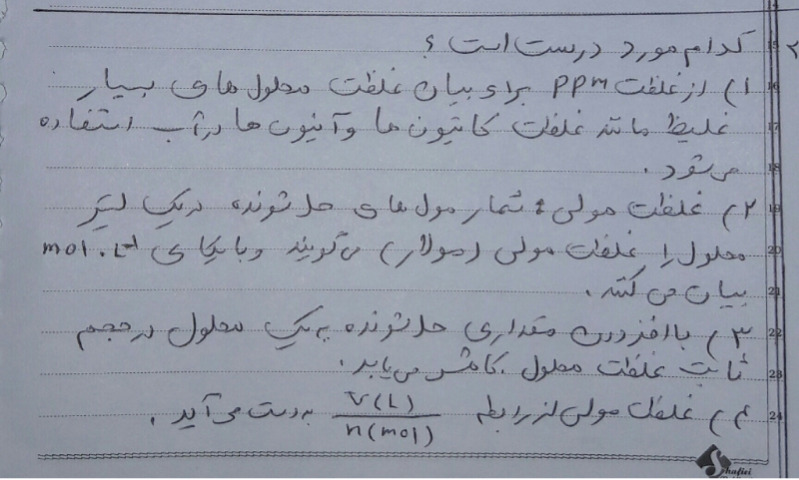 ۲ کدام مورد درست است ؟
۱) از غلظت ppm برای بیان غلظت محلول های بسیار
غلیظ مانند غلظت کاتیون ها و آنیون ها در آب استفاده
می شود .
۲) غلظت مولی : شمار مول های حل شونده در یک لیتر
محلول را غلظت مولی (مولار) می گویند و با یکای mol . L⁻¹
بیان می کنند .
۳) با افزودن مقداری حل شونده به یک محلول در حجم
ثابت غلظت محلول کاهش می یابد .
۴) غلظت مولی از رابطه V(L) / n(mol) به دست می آید .
15
16
17
18
19
20
21
22
23
24
Shafiei